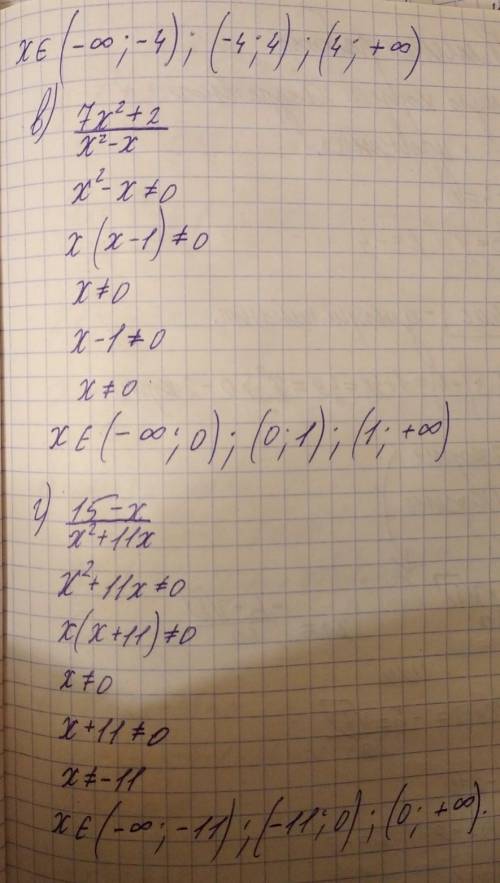 x∈(-∞;-4);(-4;4);(4;+∞)
в) 7x²+2
x²-x
x²-x≠0
x(x-1)≠0
x≠0
x-1≠0
x≠0
x∈(-∞;0);(0;1);(1;+∞)
г) 15-x
x²+11x
x²+11x≠0
x(x+11)≠0
x≠0
x+11≠0
x≠-11
x∈(-∞;-11);(-11;0);(0;+∞).